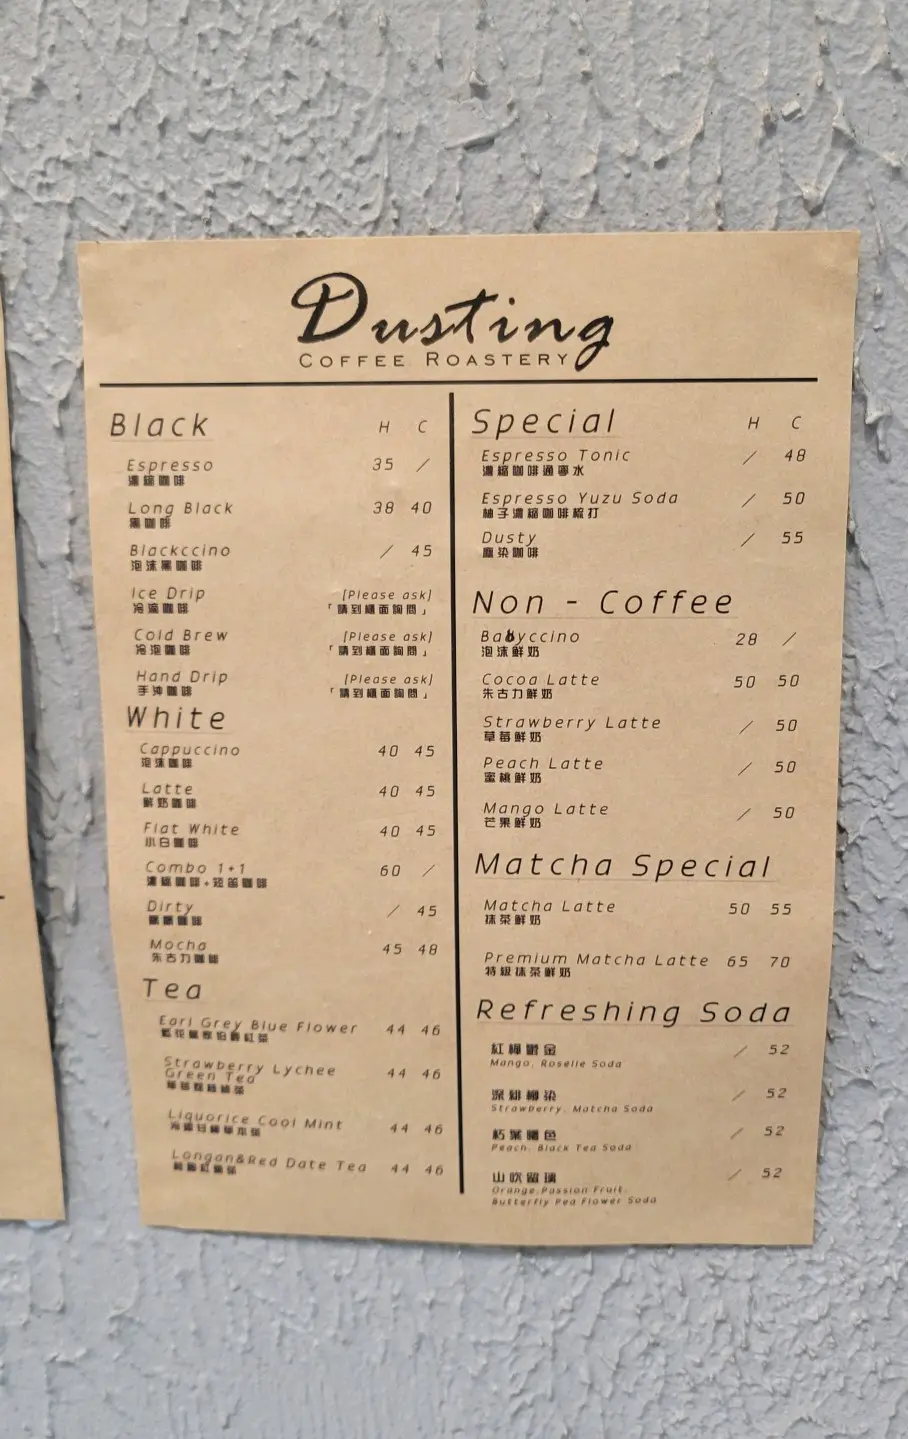 Dusting
COFFEE ROASTERY
Black H C
Espresso 35 /
濃縮咖啡
Long Black 38 40
黑咖啡
Blackccino / 45
泡沫黑咖啡
Ice Drip [Please ask]
冷滴咖啡 「請到櫃面詢問」
Cold Brew [Please ask]
冷泡咖啡 「請到櫃面詢問」
Hand Drip [Please ask]
手沖咖啡 「請到櫃面詢問」
White
Cappuccino 40 45
泡沫咖啡
Latte 40 45
鮮奶咖啡
Flat White 40 45
小白咖啡
Combo 1+1 60 /
Dirty / 45
Mocha 45 48
朱古力咖啡
Tea
Earl Grey Blue Flower 44 46
Strawberry Lychee
Green Tea 44 46
Liquorice Cool Mint 44 46
Longan&Red Date Tea 44 46
Special H C
Espresso Tonic / 48
濃縮咖啡通寧水
Espresso Yuzu Soda / 50
柚子濃縮咖啡梳打
Dusty / 55
塵染咖啡
Non - Coffee
Babyccino 28 /
泡沫鮮奶
Cocoa Latte 50 50
朱古力鮮奶
Strawberry Latte / 50
草莓鮮奶
Peach Latte / 50
蜜桃鮮奶
Mango Latte / 50
芒果鮮奶
Matcha Special
Matcha Latte 50 55
抹茶鮮奶
Premium Matcha Latte 65 70
特級抹茶鮮奶
Refreshing Soda
紅樺鬱金 / 52
Mango, Roselle Soda
深緋柳染 / 52
Strawberry, Matcha Soda
朽葉曙色 / 52
Peach, Black Tea Soda
山吹留璃 / 52
Orange, Passion Fruit,
Butterfly Pea Flower Soda